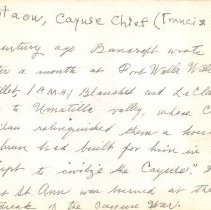 taow, Cayuse Chief (Francis
century ago Bancroft wrote
a month at Fort Walla Walla
Blanchet and Le Cla
to Umatilla valley, where C
relinquished them a hous
had built for him in
to civilize the Cayuse."
St Ann was burned at the
break of the Cayuse War.